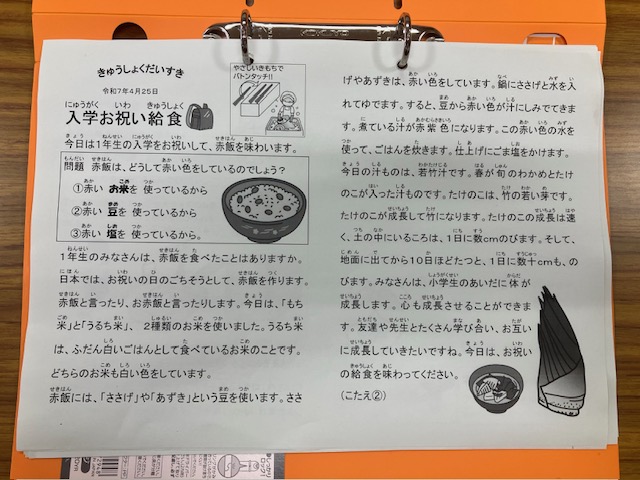 KOKUYO
きゅうしょくだいすき
令和7年4月25日
入学お祝い給食
やさしいきもちで
バトンタッチ!!
今日は1年生の入学をお祝いして、赤飯を味わいます。
問題 赤飯は、どうして赤い色をしているのでしょう?
①赤い お米を 使っているから
②赤い 豆を 使っているから
③赤い 塩を 使っているから。
1年生のみなさんは、赤飯を食べたことはありますか。
日本では、お祝いの日のごちそうとして、赤飯を作ります。
赤飯と言ったり、お赤飯と言ったりします。今日は、「もち
米」と「うるち米」、 2種類のお米を使いました。うるち米
は、ふだん白いごはんとして食べているお米のことです。
どちらのお米も白い色をしています。
赤飯には、「ささげ」や「あずき」という豆を使います。ささ
げやあずきは、赤い色をしています。鍋にささげと水を入
れてゆでます。すると、豆から赤い色が汁にしみでてきま
す。煮ている汁が赤紫色になります。この赤い色の水を
使って、ごはんを炊きます。仕上げにごま塩をかけます。
今日の汁ものは、若竹汁です。春が旬のわかめとたけ
のこが入った汁ものです。たけのこは、竹の若い芽です。
たけのこが成長して竹になります。たけのこの成長は速
く、土の中にいるころは、1日に数cmのびます。そして、
地面に出てから10日ほどたつと、1日に数十cmも、の
びます。みなさんは、小学生のあいだに体が
成長します。心も成長させることができま
す。友達や先生とたくさん学び合い、お互い
に成長していきたいですね。今日は、お祝い
の給食を味わってください。
(こたえ②)